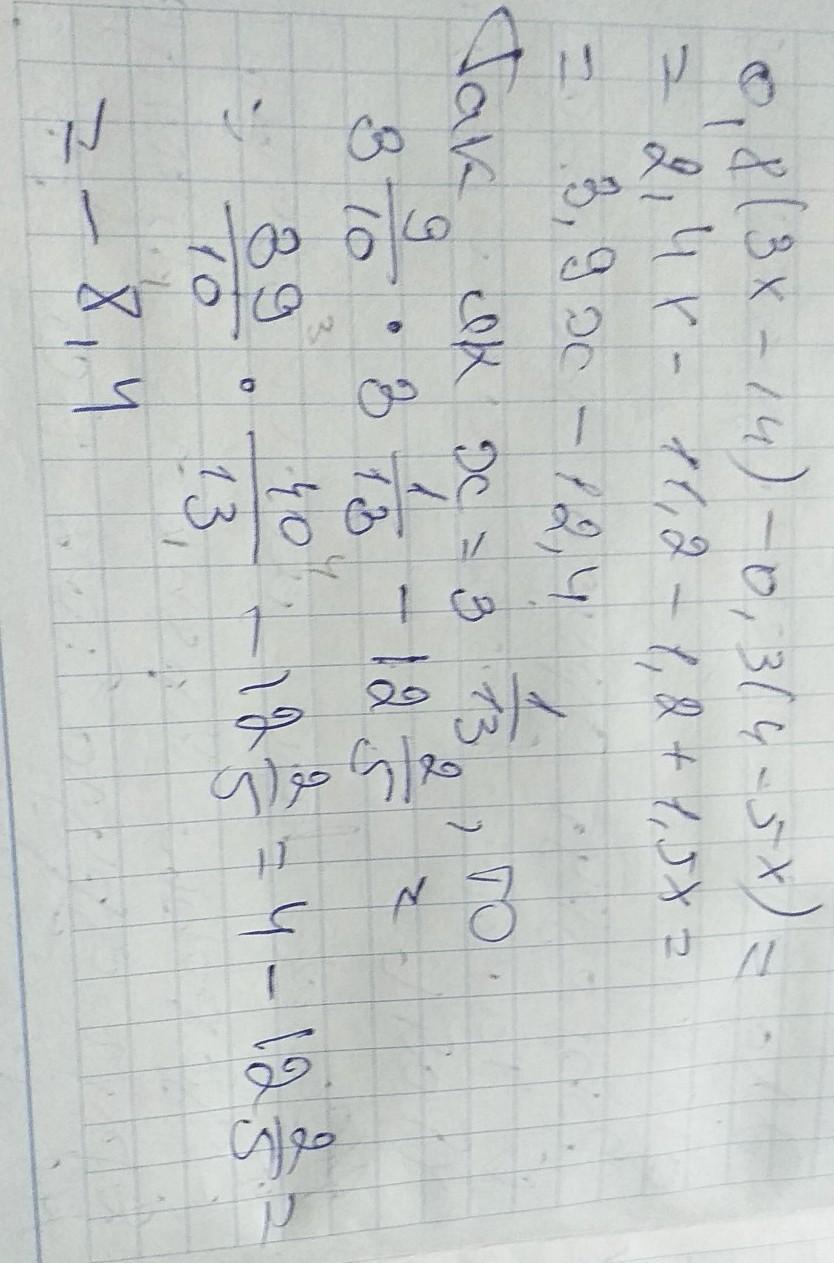 0,8(3x - 14) - 0,3(4 - 5x) =
= 2,4x - 11,2 - 1,2 + 1,5x =
= 3,9x - 12,4
Так как x = 3 1/13, то
3 9/10 · 3 1/13 - 12 2/5 =
= 39/10 · 40/13 - 12 2/5 = 4 - 12 2/5 =
= - 8,4